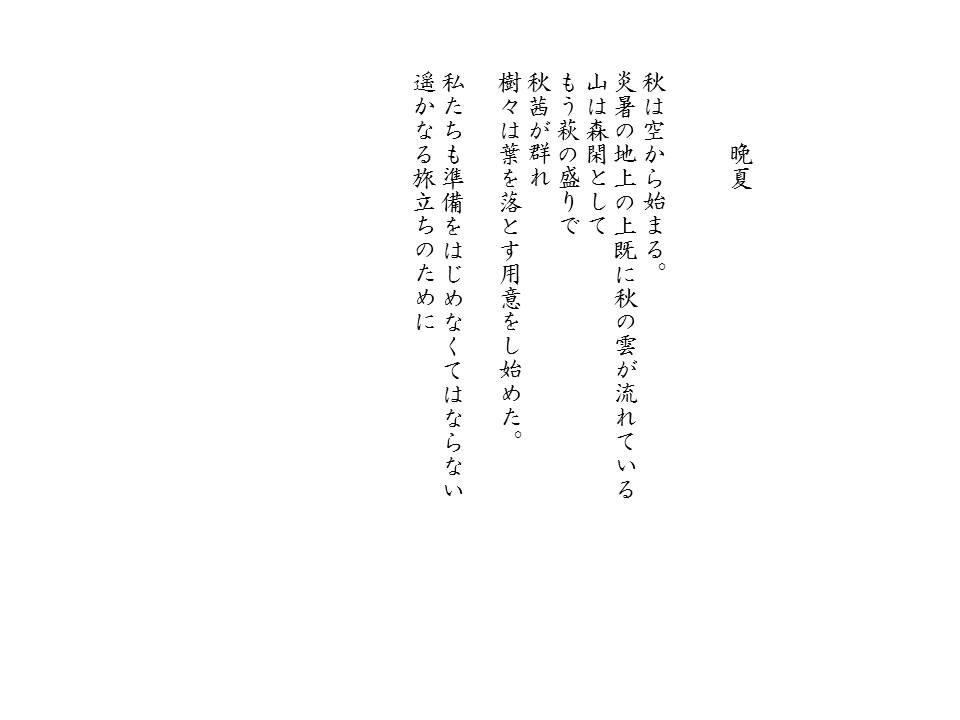 晩夏
秋は空から始まる。
炎暑の地上の上既に秋の雲が流れている
山は森閑として
もう萩の盛りで
秋茜が群れ
樹々は葉を落とす用意をし始めた。
私たちも準備をはじめなくてはならない
遥かなる旅立ちのために